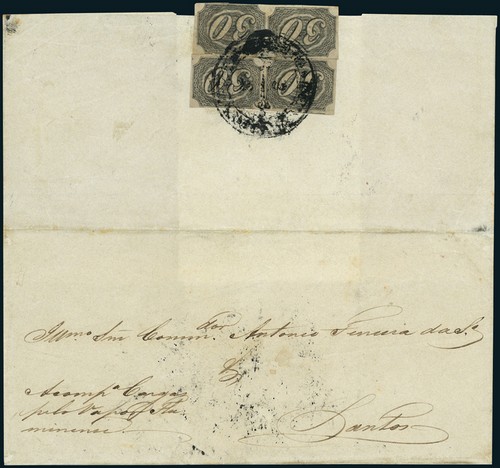 30 30
30 30
Illmo Snr Commdor Antonio Ferreira da Sa
Acompa Cargas
pelo Vapor Flu
minense
Santos